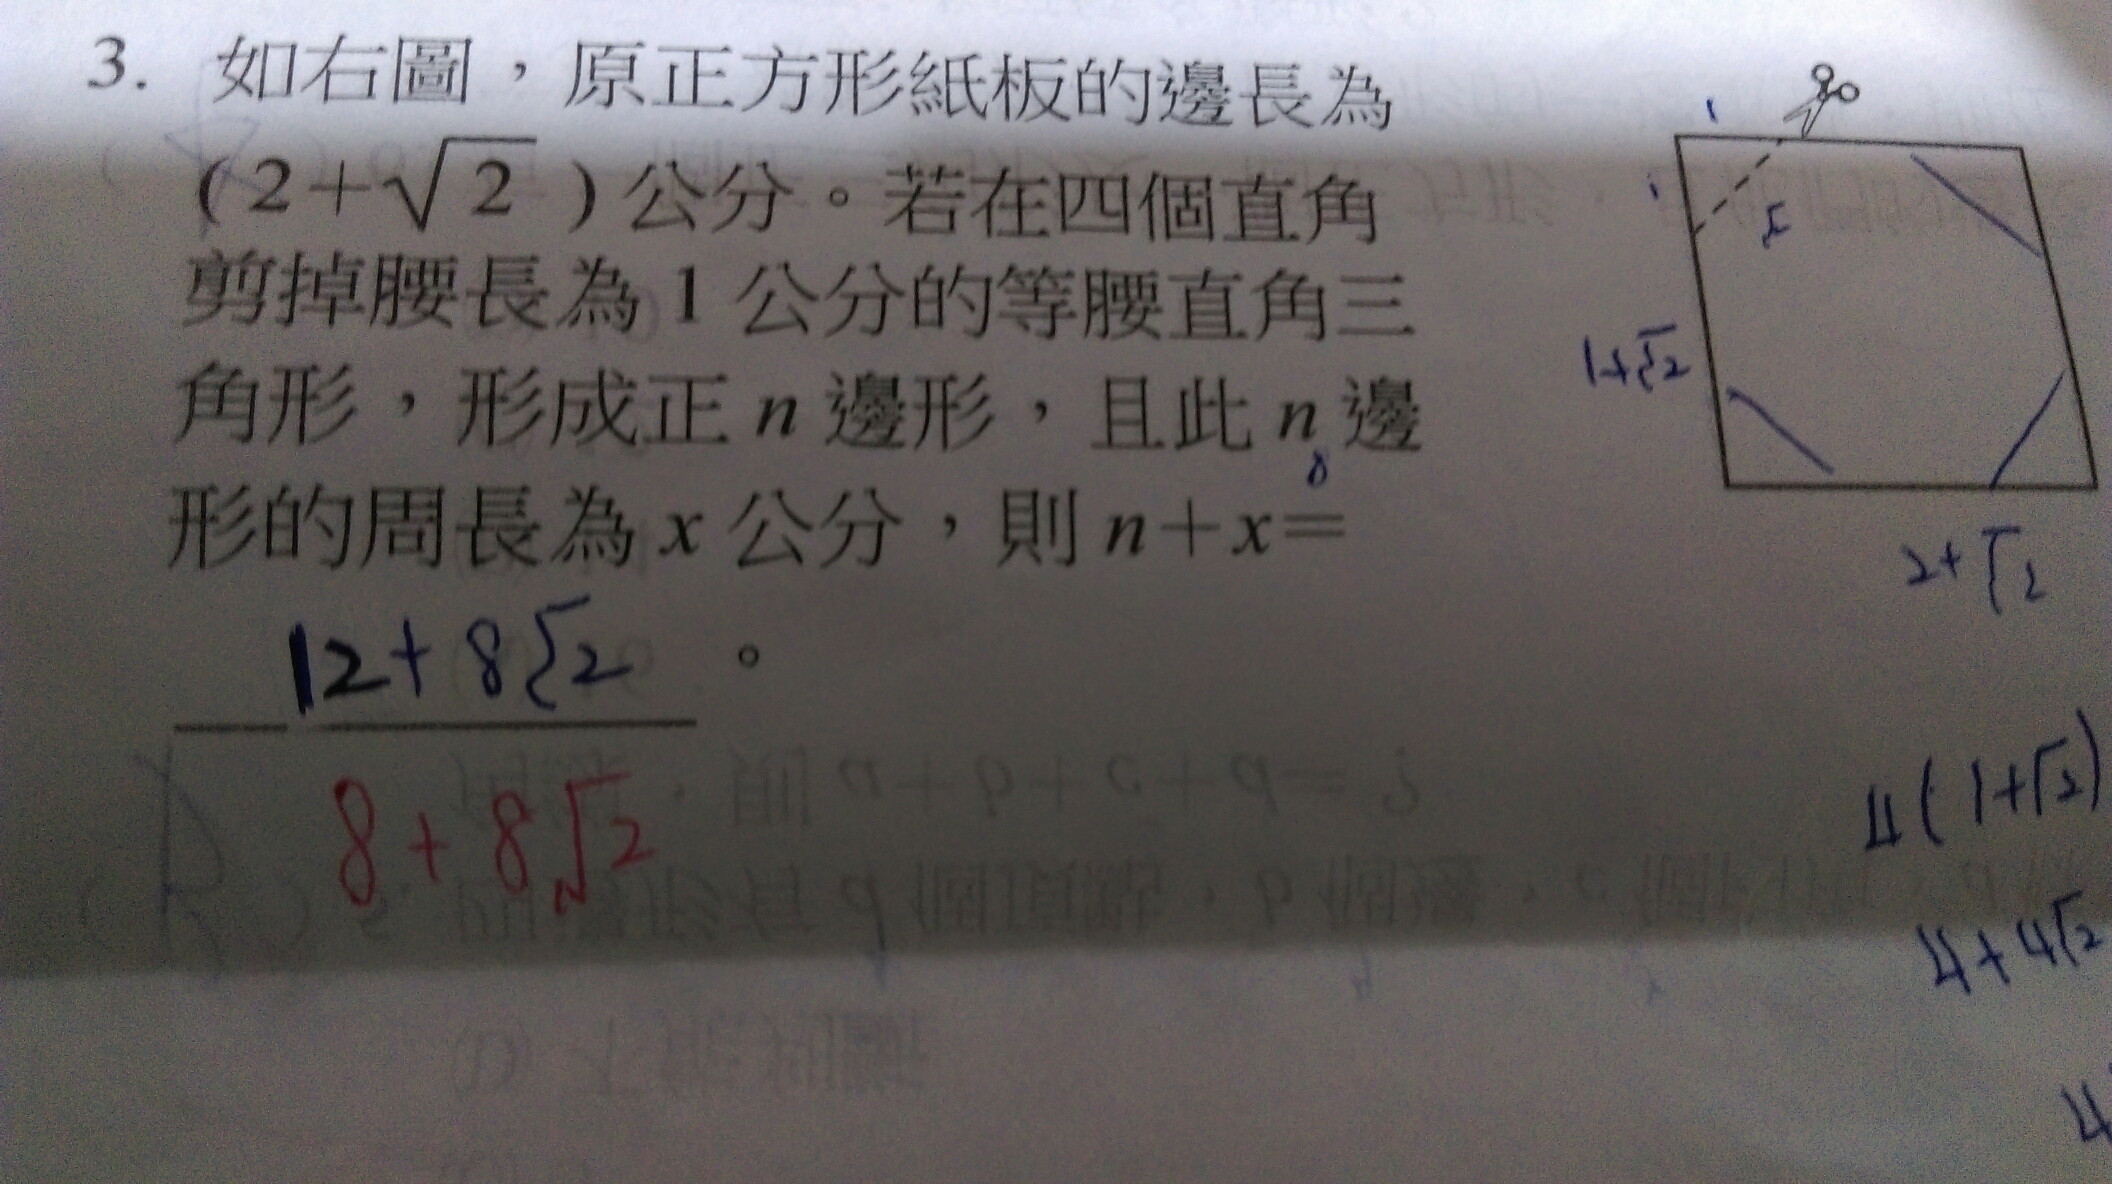 3. 如右圖，原正方形紙板的邊長為
(2+√2)公分。若在四個直角
剪掉腰長為1公分的等腰直角三
角形，形成正n邊形，且此n邊
8
形的周長為x公分，則n+x=
12+8√2。
8+8√2
1
1
1+√2
2+√2
4(1+√2)
4+4√2
4